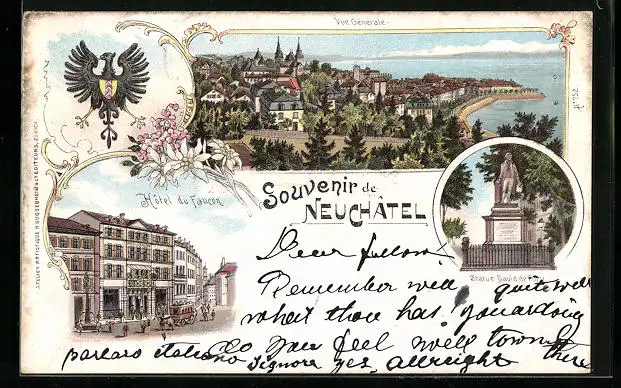 Vue Générale
No 752
Hôtel du Faucon
Souvenir de
NEUCHÂTEL
Statue David de
ATELIER ARTISTIQUE H. GUGGENHEIM & Cie EDITEURS, ZÜRICH.
Dear fellow!
Remember well quite well
what thou has you
do you feel well town
parlaro italiano Signore yes, allreight there